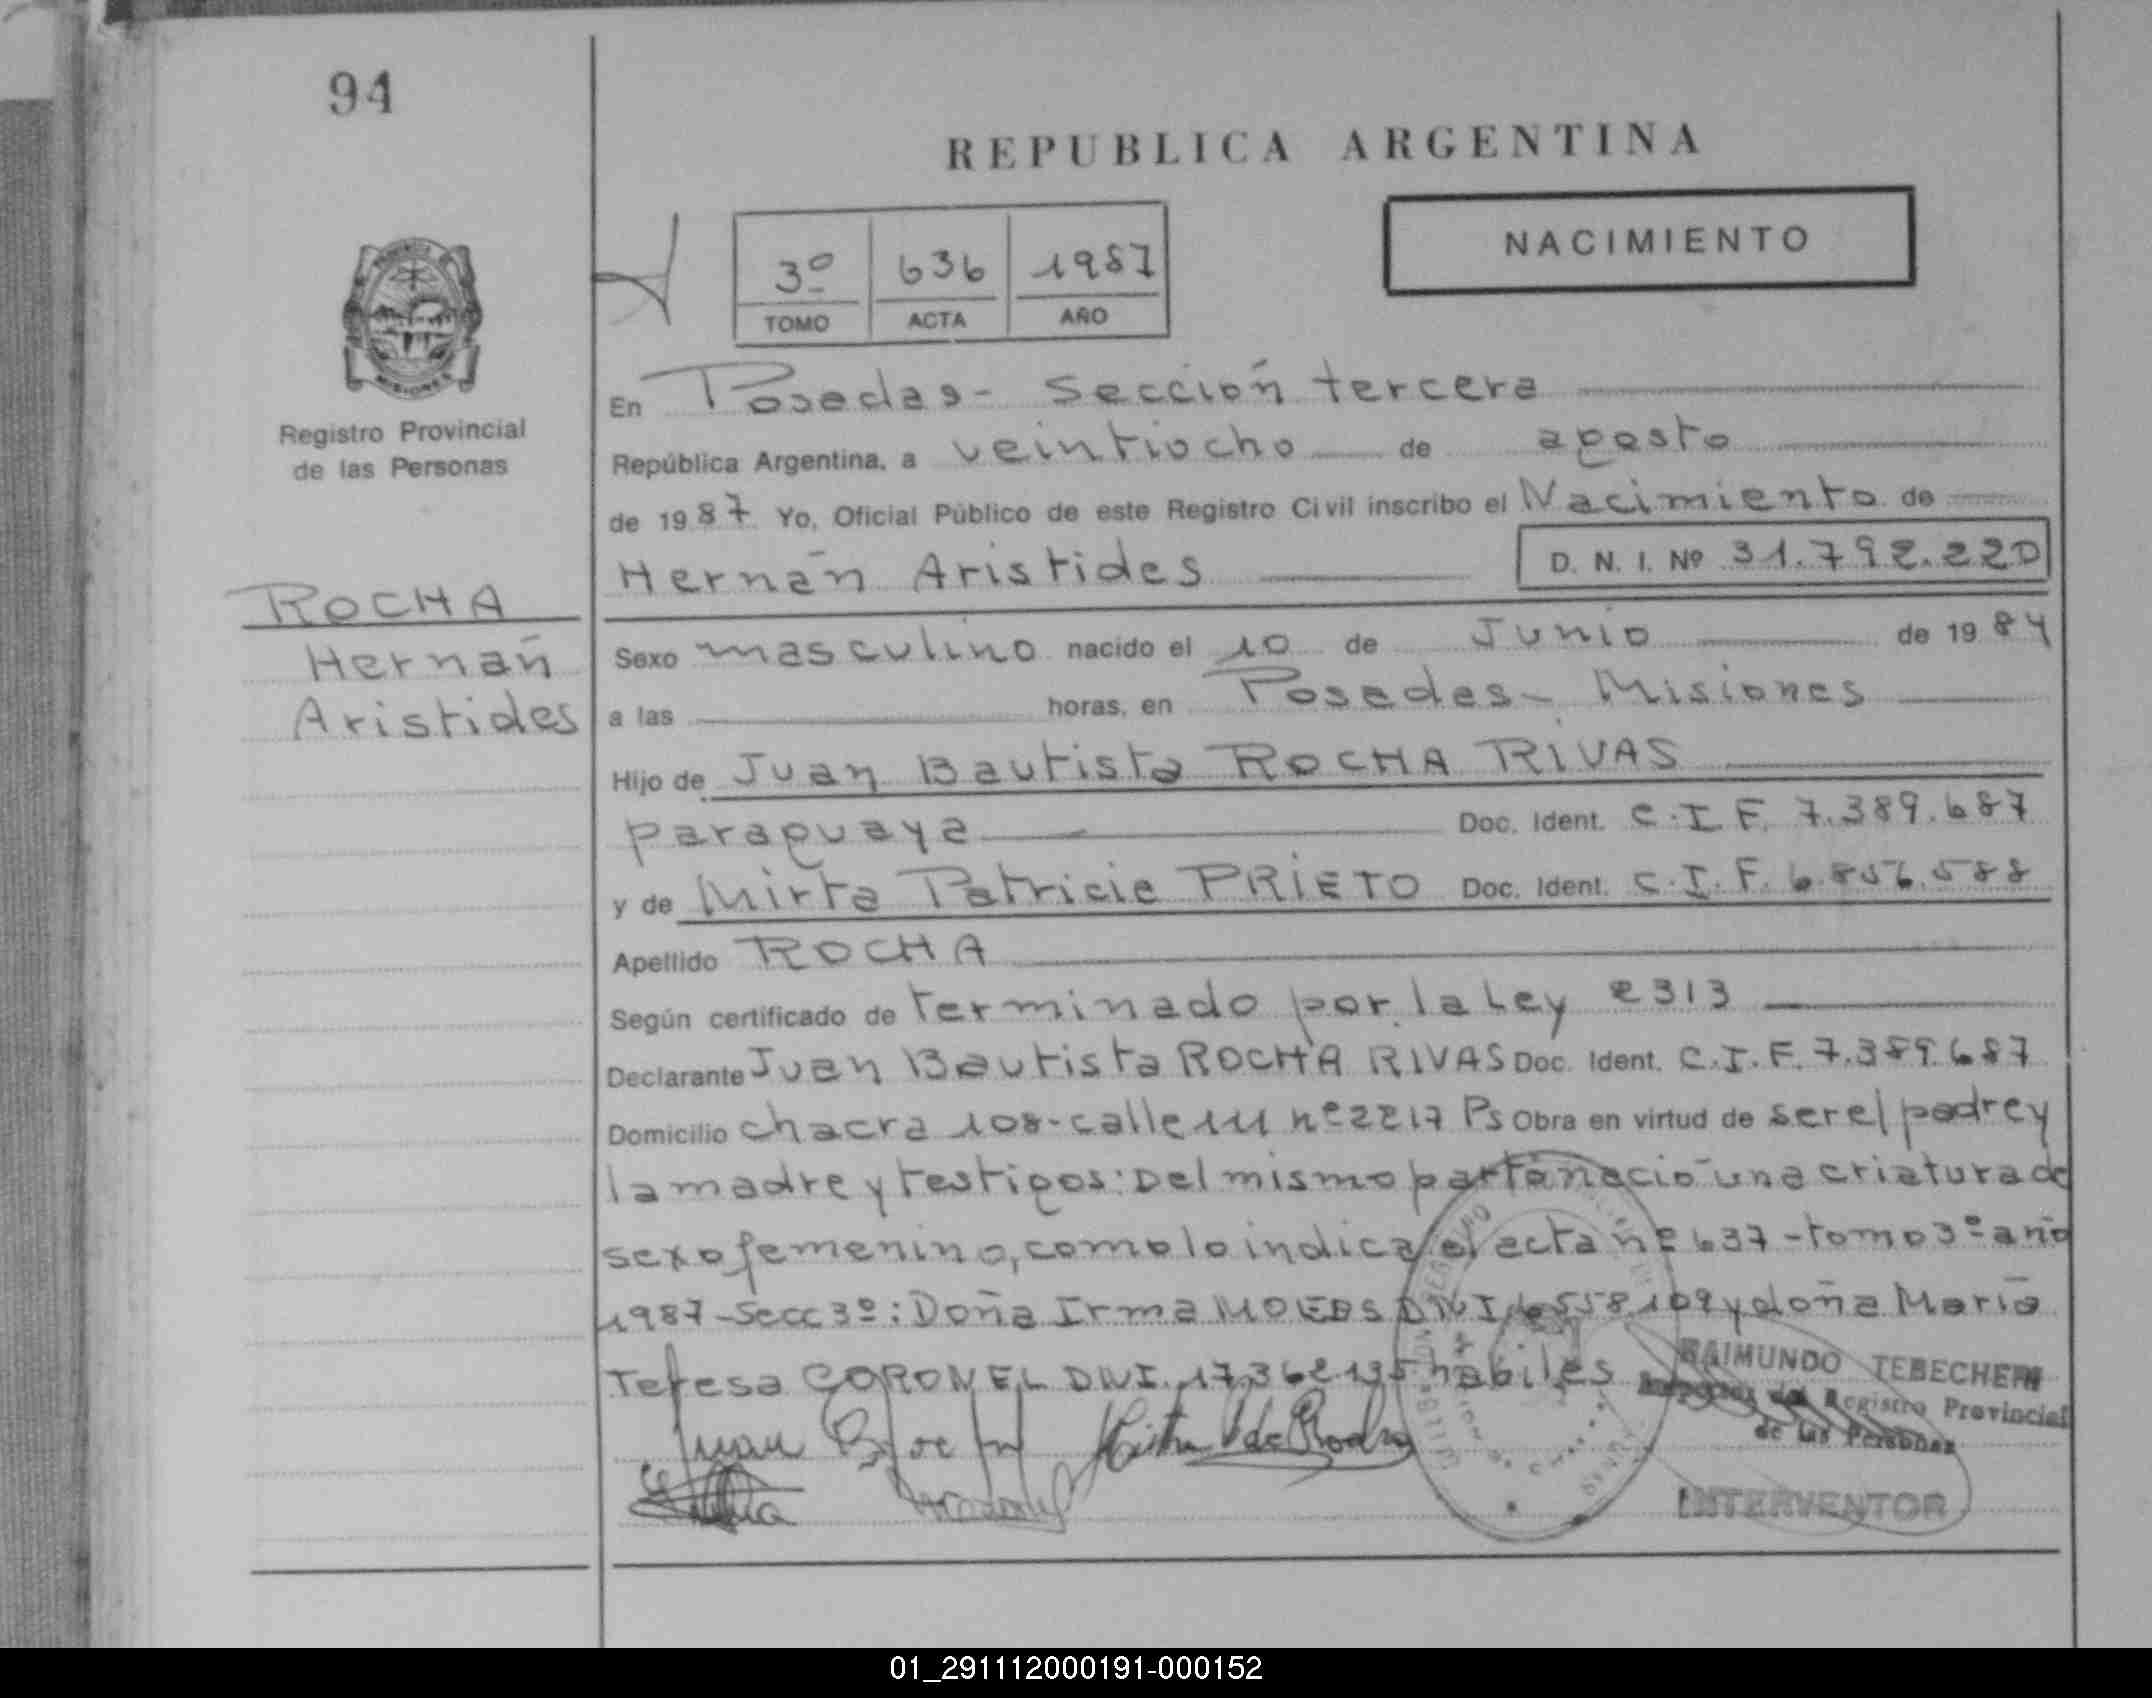 94
REPUBLICA ARGENTINA
NACIMIENTO
3º 636 1987
TOMO ACTA AÑO
Registro Provincial
de las Personas
ROCHA
Hernán
Aristides
En Posadas - Sección tercera
República Argentina, a veintiocho de agosto
de 1987 Yo, Oficial Público de este Registro Civil inscribo el Nacimiento de
Hernán Aristides D. N. I. Nº 31.792.220
Sexo masculino nacido el 10 de Junio de 1984
a las horas, en Posadas - Misiones
Hijo de Juan Bautista ROCHA RIVAS
paraguaya Doc. Ident. C.I.F. 7.389.687
y de Mirta Patricia PRIETO Doc. Ident. C.I.F. 6.856.588
Apellido ROCHA
Según certificado de terminado por la Ley 2313
Declarante Juan Bautista ROCHA RIVAS Doc. Ident. C.I.F. 7.389.687
Domicilio chacra 108 - calle 111 nº 2217 Ps Obra en virtud de ser el padre y
la madre y testigos: Del mismo parto nació una criatura de
sexo femenino, como lo indica el acta nº 637 - tomo 3º año
1987 - Secc 3º: Doña Irma MOEBS DNI 6558109 y doña María
Teresa CORONEL DNI. 17.362.195 hábiles
RAIMUNDO TEBECHERI
Registro Provincial
de las Personas
INTERVENTOR
01_291112000191-000152